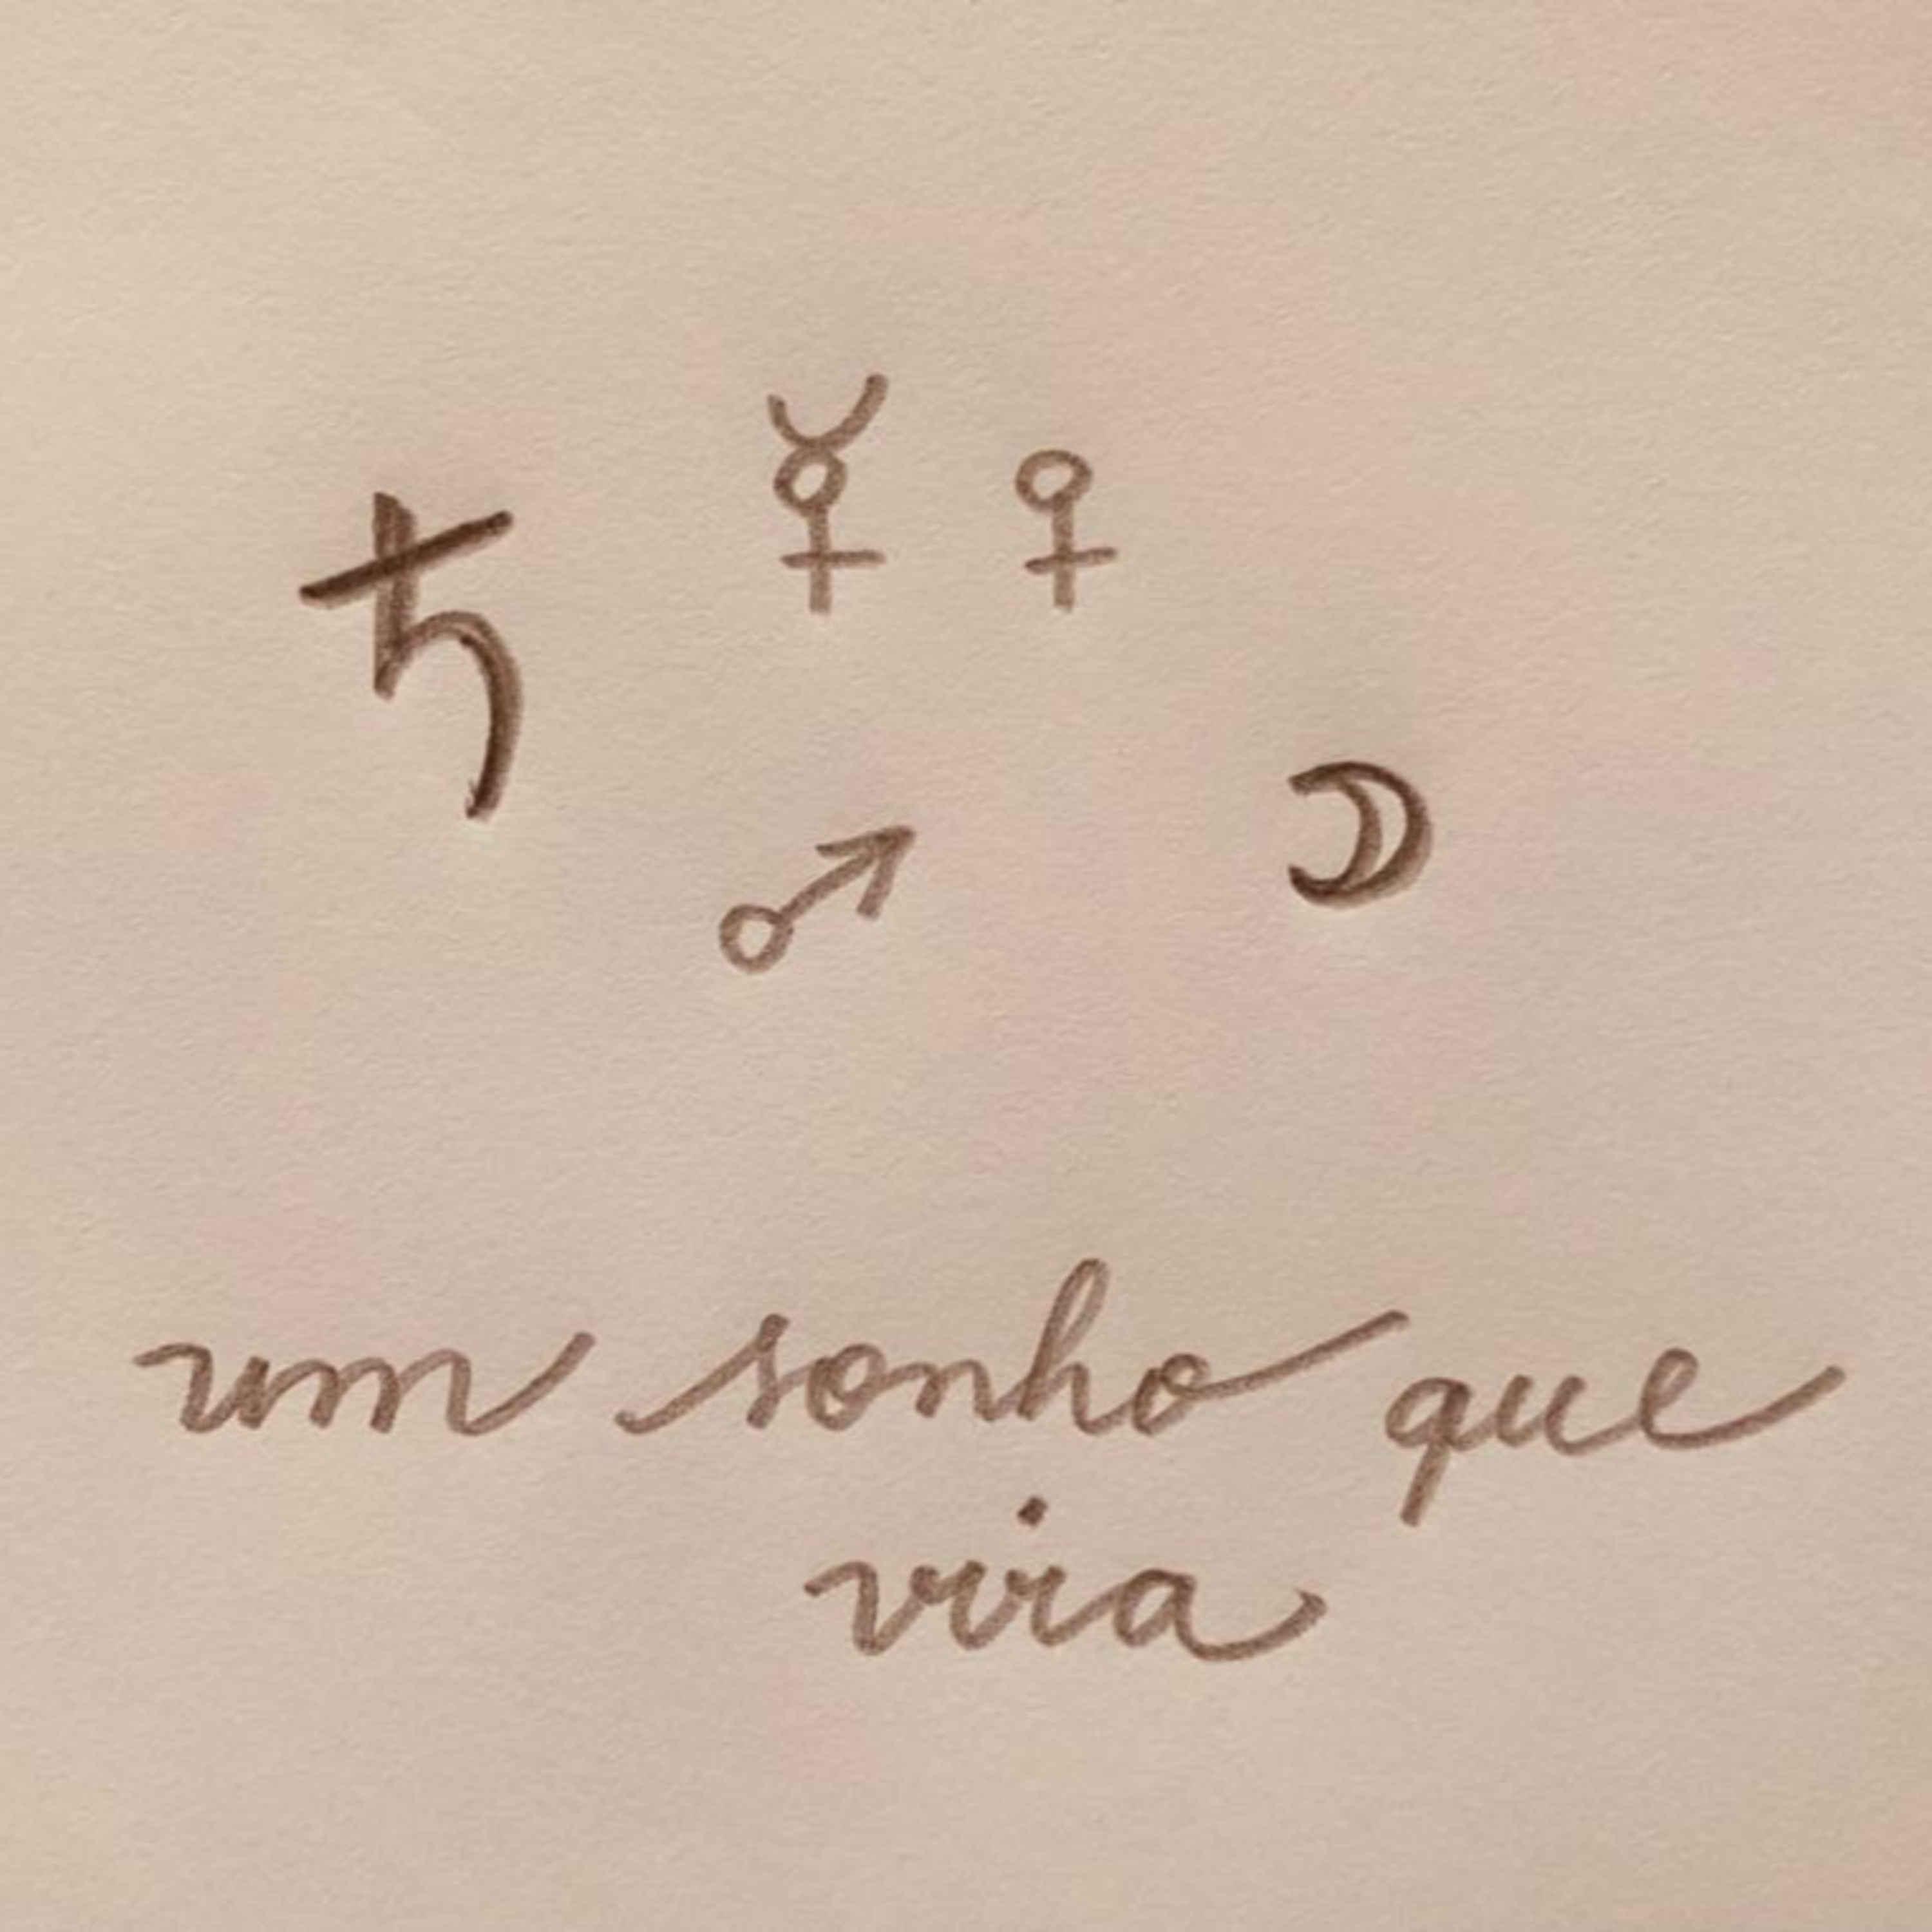 ♄ ☿ ♀
♂ ☽
um sonho que
via